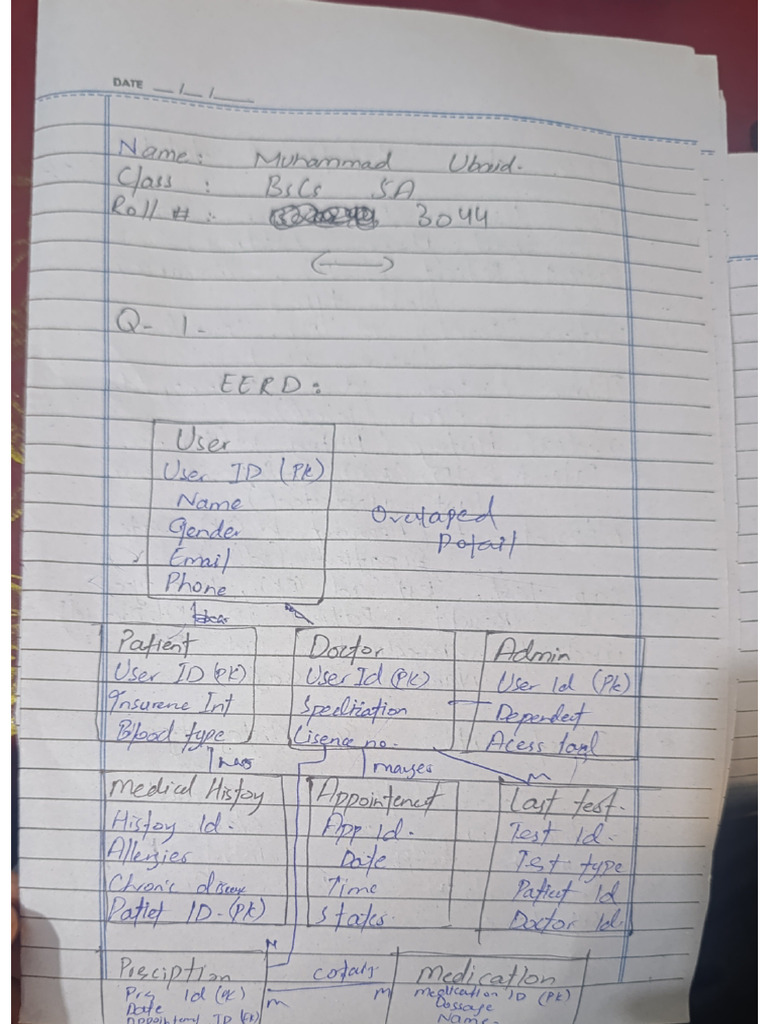 DATE __/__/__
Name: Muhammad Ubaid.
Class: BsCs 5A
Roll #: 3044
Q-1-
EERD:
User
User ID (Pk)
Name
Gender
Email
Phone
Overlaped
Potail
Patient
User ID (Pk)
Insurene Int
Blood type
Doctor
User Id (Pk)
Specltiation
Lisence no.
Admin
User Id (Pk)
Dependent
Acess
has
manges
M
Medical Histoy
Histoy Id.
Allergies
Chronic disease
Patiet ID.(Pk)
Appointenct
App Id.
Date
Time
States.
Last test.
Test Id.
Test type
Patient Id
Doctor Id.
N
Presciption
Prs Id (Pk)
Date
Appointment ID (Pk)
contais
M
M
Medication
Medication ID (Pk)
Dossage
Name.